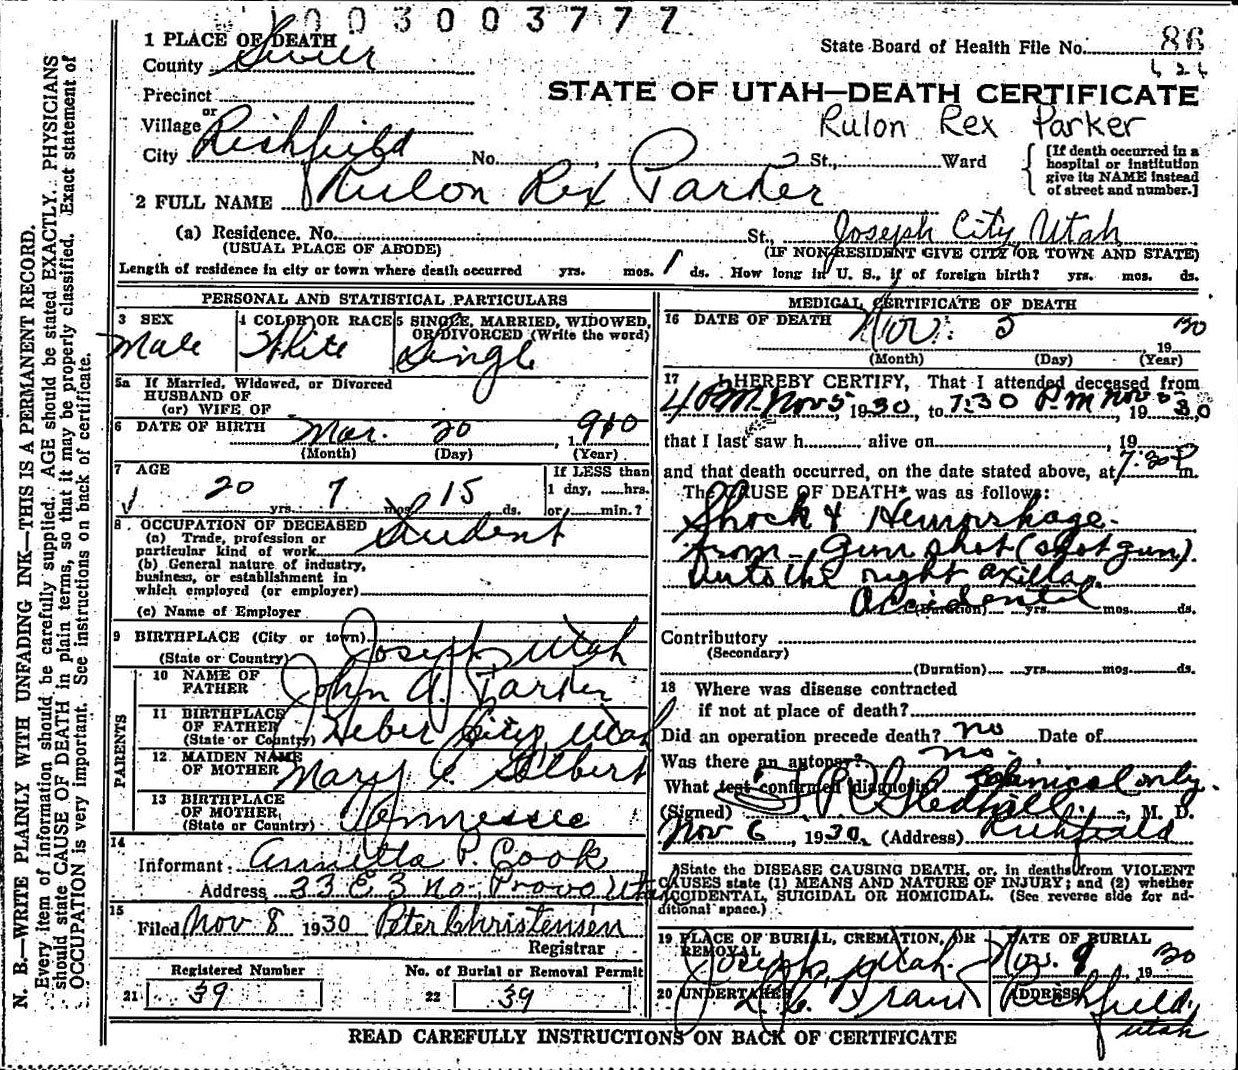 003003777
1 PLACE OF DEATH
State Board of Health File No. 86
County Sevier
626
Precinct
STATE OF UTAH—DEATH CERTIFICATE
or
Village
Rulon Rex Parker
City Richfield No. , St., Ward
[If death occurred in a hospital or institution give its NAME instead of street and number.]
2 FULL NAME Rulon Rex Parker
(a) Residence. No. St., Joseph City, Utah
(USUAL PLACE OF ABODE) (IF NON-RESIDENT GIVE CITY OR TOWN AND STATE)
Length of residence in city or town where death occurred yrs. mos. 1 ds. How long in U. S., if of foreign birth? yrs. mos. ds.
PERSONAL AND STATISTICAL PARTICULARS
3 SEX 4 COLOR OR RACE 5 SINGLE, MARRIED, WIDOWED, OR DIVORCED (Write the word)
Male White Single
5a If Married, Widowed, or Divorced
HUSBAND OF
(or) WIFE OF
6 DATE OF BIRTH Mar. 20, 1910
(Month) (Day) (Year)
7 AGE If LESS than
20 yrs. 7 mos. 15 ds. 1 day, ......hrs.
or......min.?
8 OCCUPATION OF DECEASED
(a) Trade, profession or
particular kind of work Student
(b) General nature of industry,
business, or establishment in
which employed (or employer)
(c) Name of Employer
9 BIRTHPLACE (City or town) Joseph Utah
(State or Country)
PARENTS
10 NAME OF
FATHER John A. Parker
11 BIRTHPLACE
OF FATHER Heber City, Utah
(State or Country)
12 MAIDEN NAME
OF MOTHER Mary E. Gilbert
13 BIRTHPLACE
OF MOTHER,
(State or Country) Tennessee
14
Informant Annetta P. Cook
Address 33 E 3 No. Provo Utah
15
Filed Nov 8 1930 Peter Christensen
Registrar
Registered Number No. of Burial or Removal Permit
21 39 22 39
MEDICAL CERTIFICATE OF DEATH
16 DATE OF DEATH Nov. 5, 1930
(Month) (Day) (Year)
17 I HEREBY CERTIFY, That I attended deceased from
4 P.M. Nov 5 1930, to 7:30 P.M Nov 5, 1930
that I last saw h alive on , 19
and that death occurred, on the date stated above, at 7:30 P m.
The CAUSE OF DEATH* was as follows:
Shock & Hemorrhage
from gun shot (shot gun)
into the right axilla
Accidental
(Duration) yrs. mos. ds.
Contributory
(Secondary)
(Duration) yrs. mos. ds.
18 Where was disease contracted
if not at place of death?
Did an operation precede death? no Date of
Was there an autopsy? no
What test confirmed diagnosis? only.
(Signed) , M. D.
Nov 6, 1930, (Address) Richfield
*State the DISEASE CAUSING DEATH, or, in deaths from VIOLENT
CAUSES state (1) MEANS AND NATURE OF INJURY; and (2) whether
ACCIDENTAL, SUICIDAL OR HOMICIDAL. (See reverse side for ad-
ditional space.)
19 PLACE OF BURIAL, CREMATION, OR REMOVAL DATE OF BURIAL
Joseph, Utah. Nov. 9, 1930
20 UNDERTAKER ADDRESS
Richfield,
Utah
READ CAREFULLY INSTRUCTIONS ON BACK OF CERTIFICATE
N. B.—WRITE PLAINLY WITH UNFADING INK—THIS IS A PERMANENT RECORD.
Every item of information should be carefully supplied. AGE should be stated EXACTLY. PHYSICIANS
should state CAUSE OF DEATH in plain terms, so that it may be properly classified. Exact statement of
OCCUPATION is very important. See instructions on back of certificate.